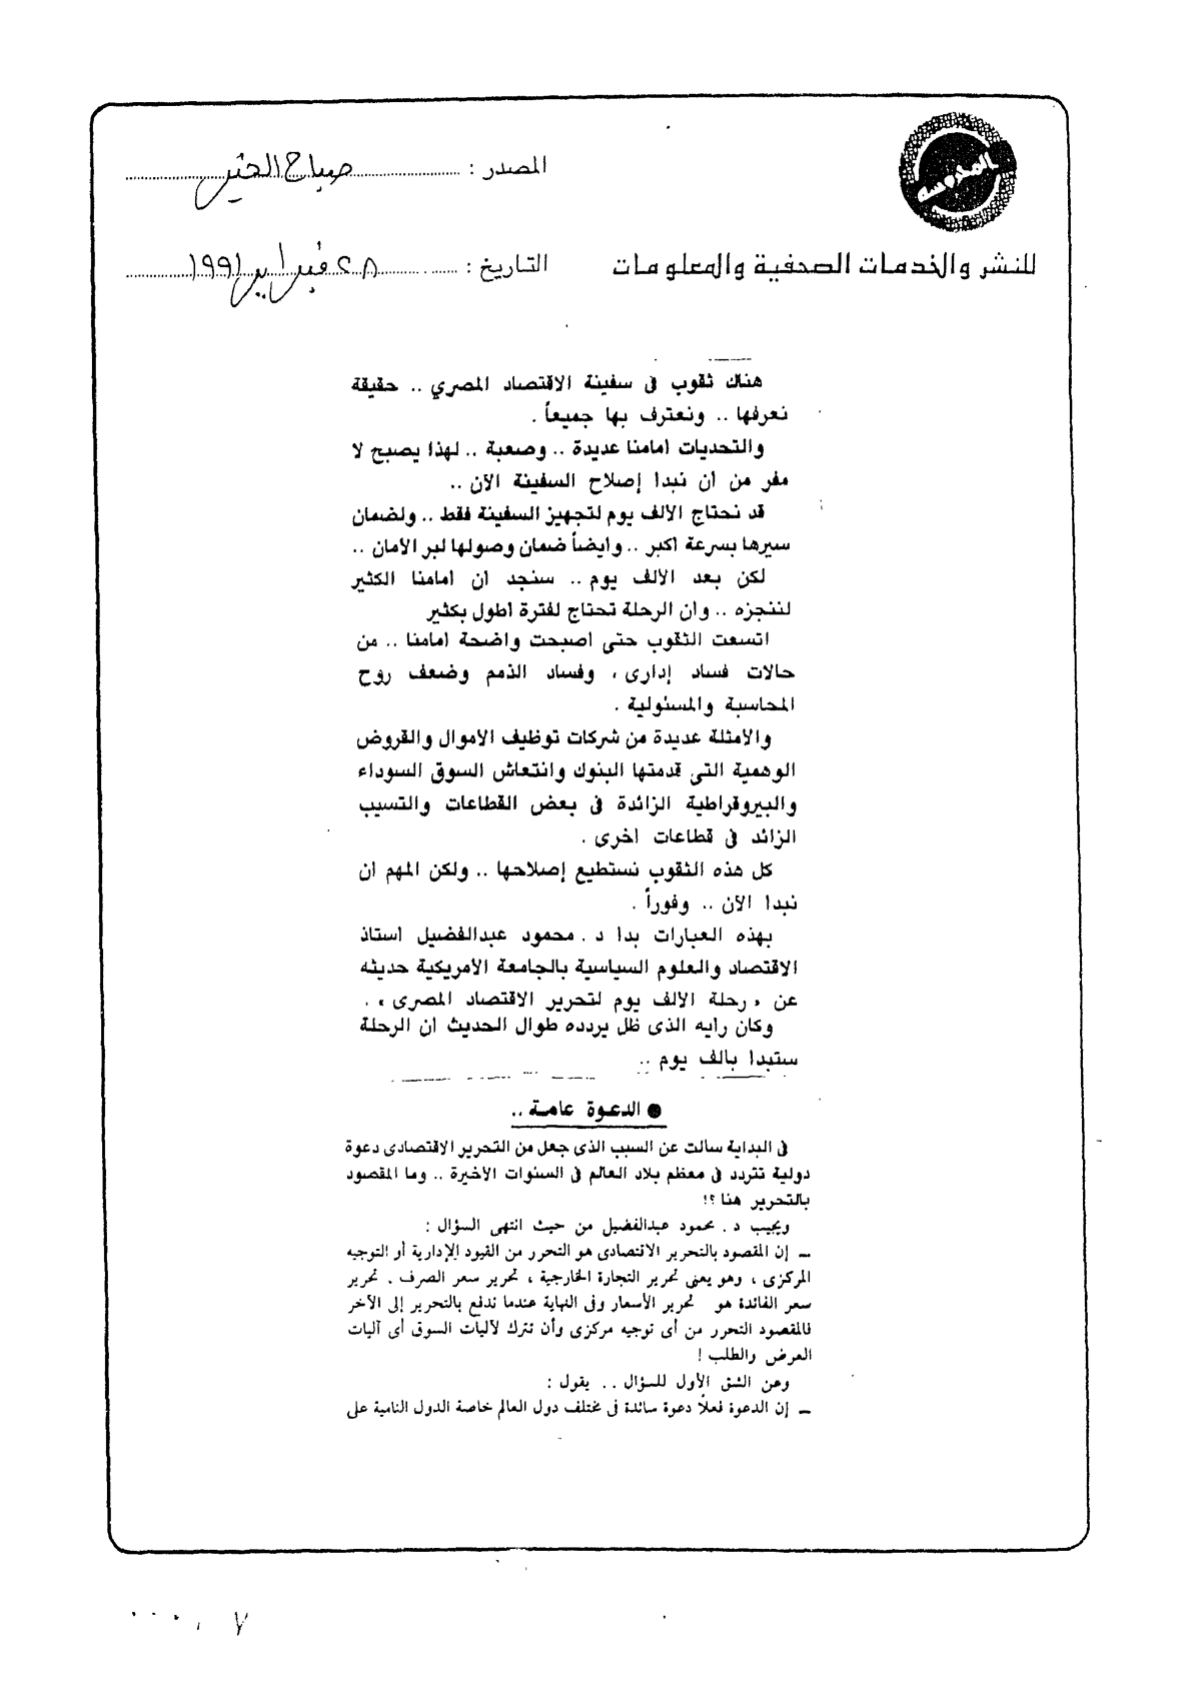 المحروسة
المصدر : صباح الخير
للنشر والخدمات الصحفية والمعلومات
التاريخ : ٢٨ فبراير ١٩٩١
هناك ثقوب فى سفينة الاقتصاد المصري .. حقيقة
نعرفها .. ونعترف بها جميعاً .
والتحديات امامنا عديدة .. وصعبة .. لهذا يصبح لا
مفر من ان نبدا إصلاح السفينة الآن ..
قد نحتاج الألف يوم لتجهيز السفينة فقط .. ولضمان
سيرها بسرعة اكبر .. وايضاً ضمان وصولها لبر الأمان ..
لكن بعد الألف يوم .. سنجد ان امامنا الكثير
لننجزه .. وان الرحلة تحتاج لفترة اطول بكثير
اتسعت الثقوب حتى اصبحت واضحة امامنا .. من
حالات فساد إدارى ، وفساد الذمم وضعف روح
المحاسبة والمسئولية .
والأمثلة عديدة من شركات توظيف الأموال والقروض
الوهمية التى قدمتها البنوك وانتعاش السوق السوداء
والبيروقراطية الزائدة فى بعض القطاعات والتسيب
الزائد فى قطاعات اخرى .
كل هذه الثقوب نستطيع إصلاحها .. ولكن المهم ان
نبدا الآن .. وفوراً .
بهذه العبارات بدا د . محمود عبدالفضيل استاذ
الاقتصاد والعلوم السياسية بالجامعة الأمريكية حديثه
عن « رحلة الألف يوم لتحرير الاقتصاد المصرى » .
وكان رايه الذى ظل يردده طوال الحديث ان الرحلة
ستبدا بالف يوم ..
● الدعوة عامة ..
فى البداية سالت عن السبب الذى جعل من التحرير الاقتصادى دعوة
دولية تتردد فى معظم بلاد العالم فى السنوات الأخيرة .. وما المقصود
بالتحرير هنا ؟!
ويجيب د . محمود عبدالفضيل من حيث انتهى السؤال :
ــ إن المقصود بالتحرير الاقتصادى هو التحرر من القيود الإدارية أو التوجيه
المركزى ، وهو يعنى تحرير التجارة الخارجية ، تحرير سعر الصرف . تحرير
سعر الفائدة هو تحرير الأسعار وفى النهاية عندما ندفع بالتحرير إلى الآخر
فالمقصود التحرر من أى توجيه مركزى وأن نترك لآليات السوق أى آليات
العرض والطلب !
وعن الشق الأول للسؤال .. يقول :
ــ إن الدعوة فعلاً دعوة سائدة فى مختلف دول العالم خاصة الدول النامية على